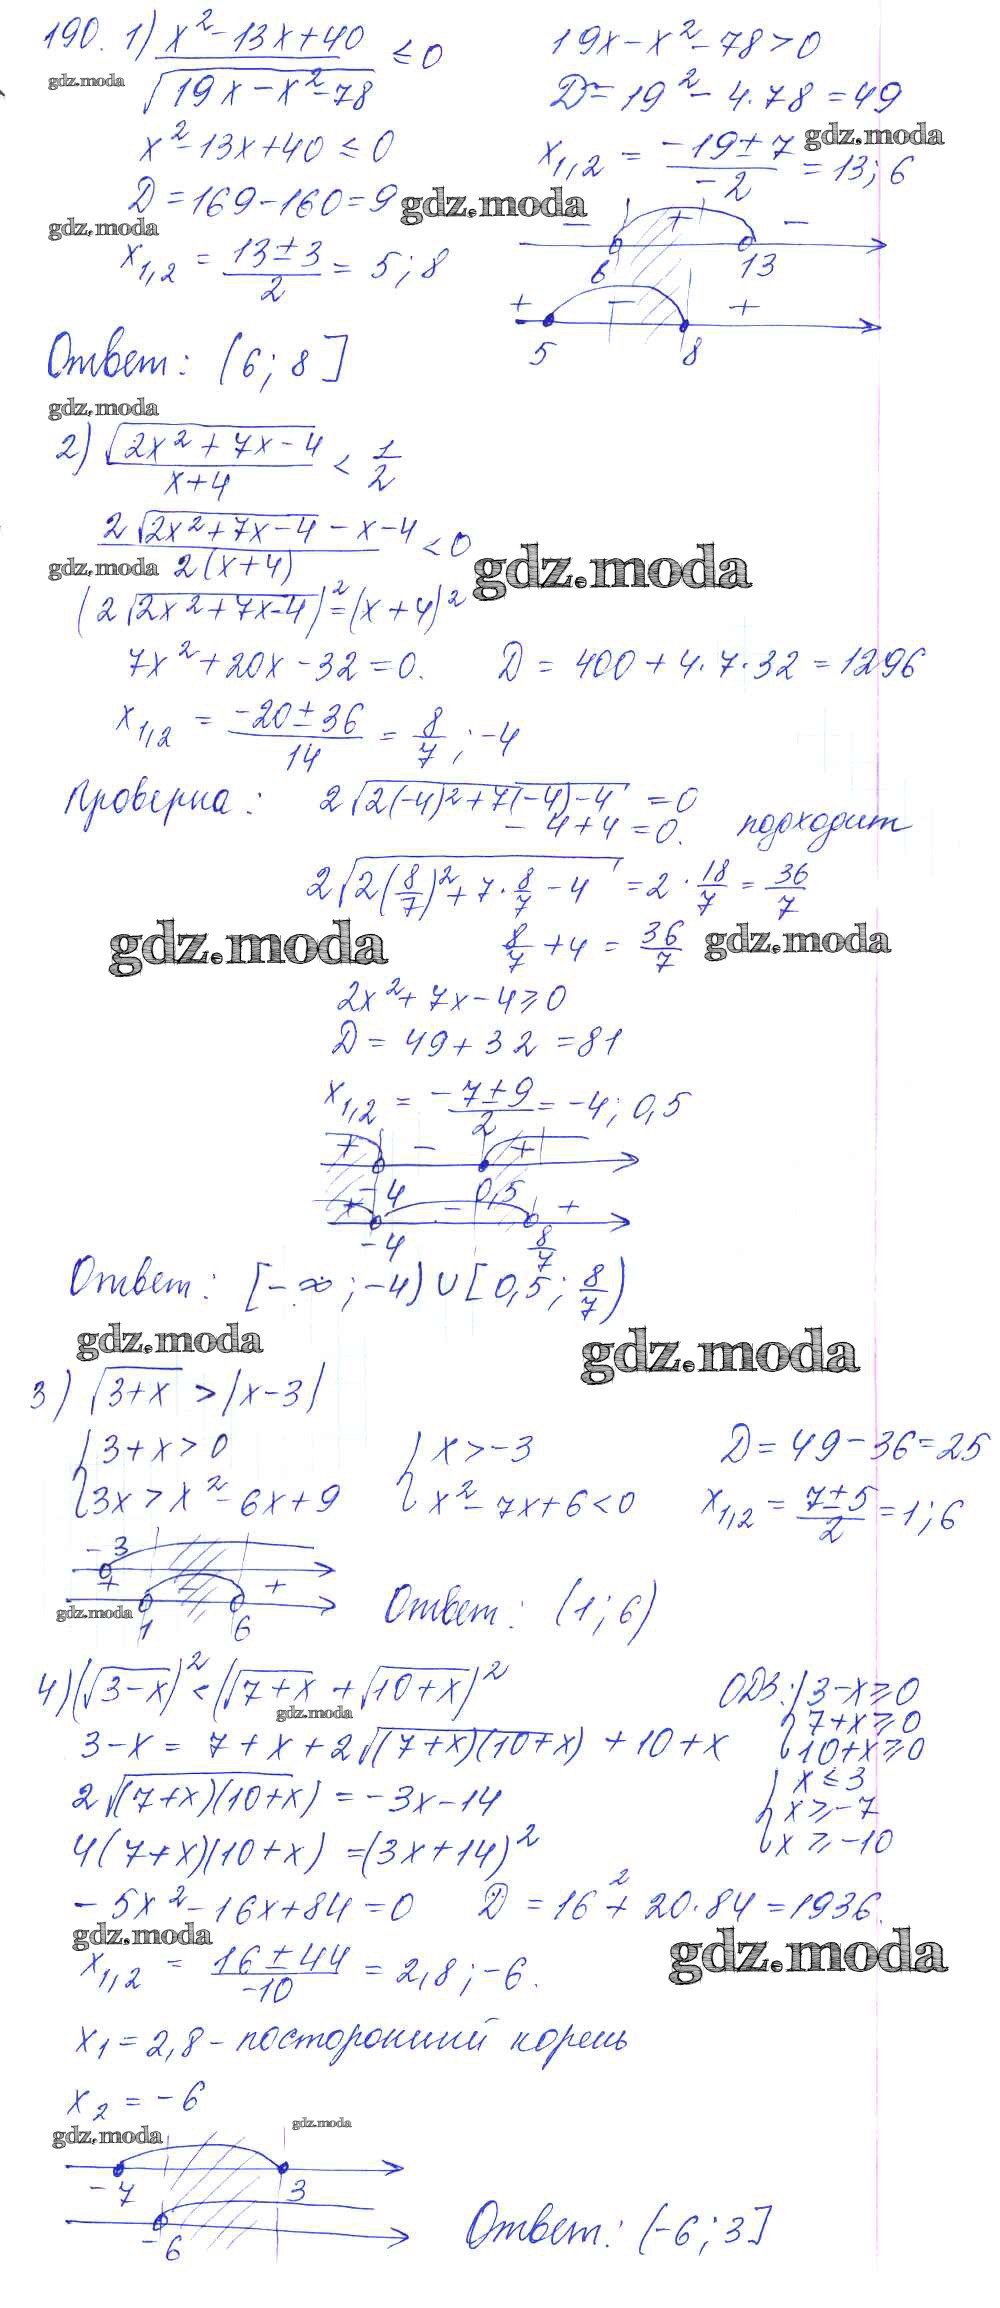 190. 1) x² - 13x + 40 / √(19x - x² - 78) ≤ 0
19x - x² - 78 > 0
gdz.moda
D = 19² - 4·78 = 49
x² - 13x + 40 ≤ 0
x₁,₂ = (-19 ± 7) / -2 = 13; 6
gdz.moda
D = 169 - 160 = 9
gdz.moda
gdz.moda
x₁,₂ = (13 ± 3) / 2 = 5; 8
- + -
6 13
+ - +
5 8
Ответ: (6; 8]
gdz.moda
2) √(2x² + 7x - 4) / (x + 4) < 1/2
(2√(2x² + 7x - 4) - x - 4) / 2(x + 4) < 0
gdz.moda
gdz.moda
(2√(2x² + 7x - 4))² = (x + 4)²
7x² + 20x - 32 = 0. D = 400 + 4·7·32 = 1296
x₁,₂ = (-20 ± 36) / 14 = 8/7; -4
Проверка: 2√(2(-4)² + 7(-4) - 4) = 0
- 4 + 4 = 0. подходит
2√(2(8/7)² + 7·8/7 - 4) = 2·18/7 = 36/7
gdz.moda
8/7 + 4 = 36/7
gdz.moda
2x² + 7x - 4 ≥ 0
D = 49 + 32 = 81
x₁,₂ = (-7 ± 9) / 2 = -4; 0,5
+ - +
-4 0,5
+ - +
-4 8/7
Ответ: [-∞; -4) ∪ [0,5; 8/7)
gdz.moda
gdz.moda
3) √(3+x) > |x-3|
{ 3 + x > 0
{ x > -3
D = 49 - 36 = 25
3x > x² - 6x + 9
x² - 7x + 6 < 0
x₁,₂ = (7 ± 5) / 2 = 1; 6
-3
+ - +
gdz.moda
1 6
Ответ: (1; 6)
4) (√(3-x))² < (√(7+x) + √(10+x))²
ОДЗ: { 3 - x ≥ 0
gdz.moda
7 + x ≥ 0
3 - x = 7 + x + 2√((7+x)(10+x)) + 10 + x
10 + x ≥ 0
2√((7+x)(10+x)) = -3x - 14
{ x ≤ 3
x ≥ -7
4(7+x)(10+x) = (3x+14)²
x ≥ -10
- 5x² - 16x + 84 = 0 D = 16² + 20·84 = 1936.
gdz.moda
gdz.moda
x₁,₂ = (16 ± 44) / -10 = 2,8; -6.
x₁ = 2,8 - посторонний корень
x₂ = -6
gdz.moda
gdz.moda
-7 3
-6
Ответ: (-6; 3]